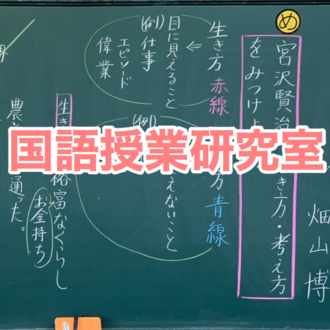 国語授業研究室
め
宮沢賢治
き方・考え方
をみつけよ
畑山博
生き方 赤線
目に見えること
(例)仕事
エピソード
偉業
方 青線
えないこと
(例)
生き
裕富なくらし
お金持ち
農
通った。